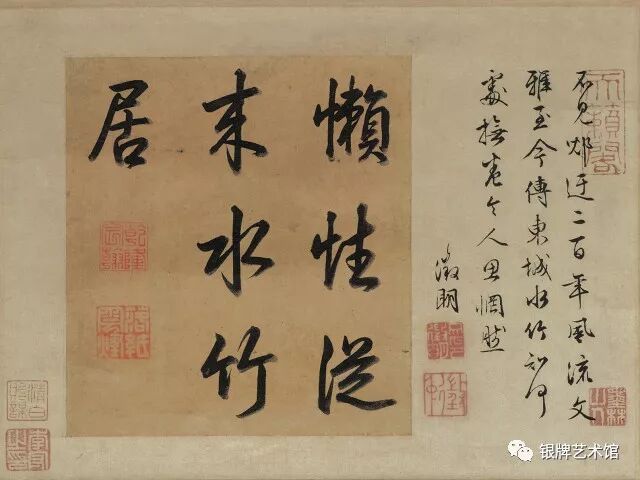 不見郳迂二百年風流文
雅至今傳東城水竹知何
處撫卷令人思惘然
徵明
懶性從
来水竹
居
天籟閣
银牌艺术馆